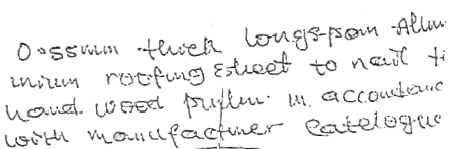 0.55mm thick longspan Alum
inium roofing sheet to nail t
hard wood purlin in accordanc
with manufacturer Catalogue